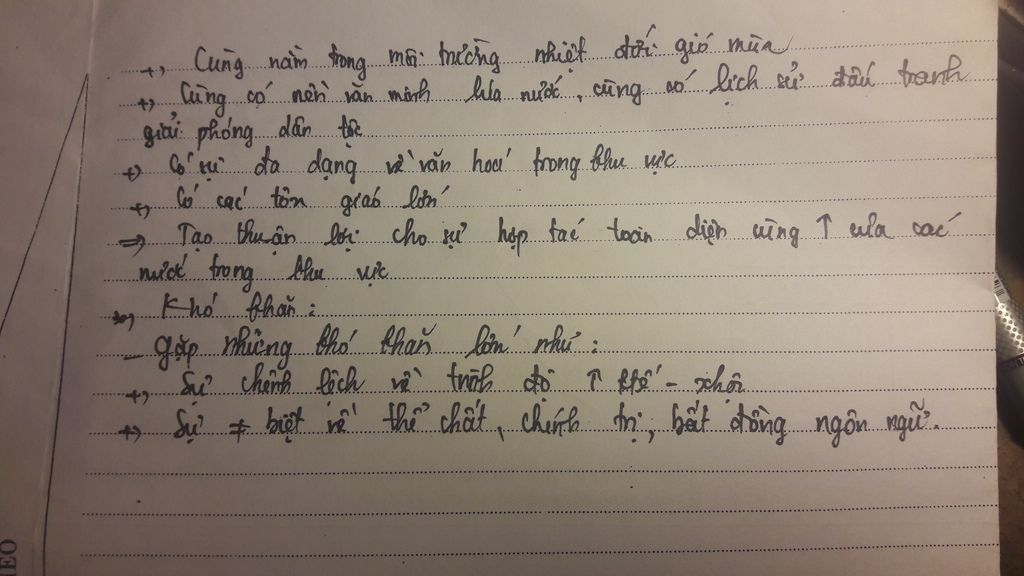 +, Cùng nằm trong môi trường nhiệt đới gió mùa
+, Cùng có nền văn minh lúa nước, cùng có lịch sử đấu tranh
giải phóng dân tộc
+, Có sự đa dạng về văn hoá trong khu vực
+, Có các tôn giáo lớn
=> Tạo thuận lợi cho sự hợp tác toàn diện cùng ↑ của các
nước trong khu vực
*, Khó khăn :
- Gặp những khó khăn lớn như :
+, Sự chênh lệch về trình độ ↑ ktế - xhội
+, Sự ≠ biệt về thể chất, chính trị, bất đồng ngôn ngữ.
EO